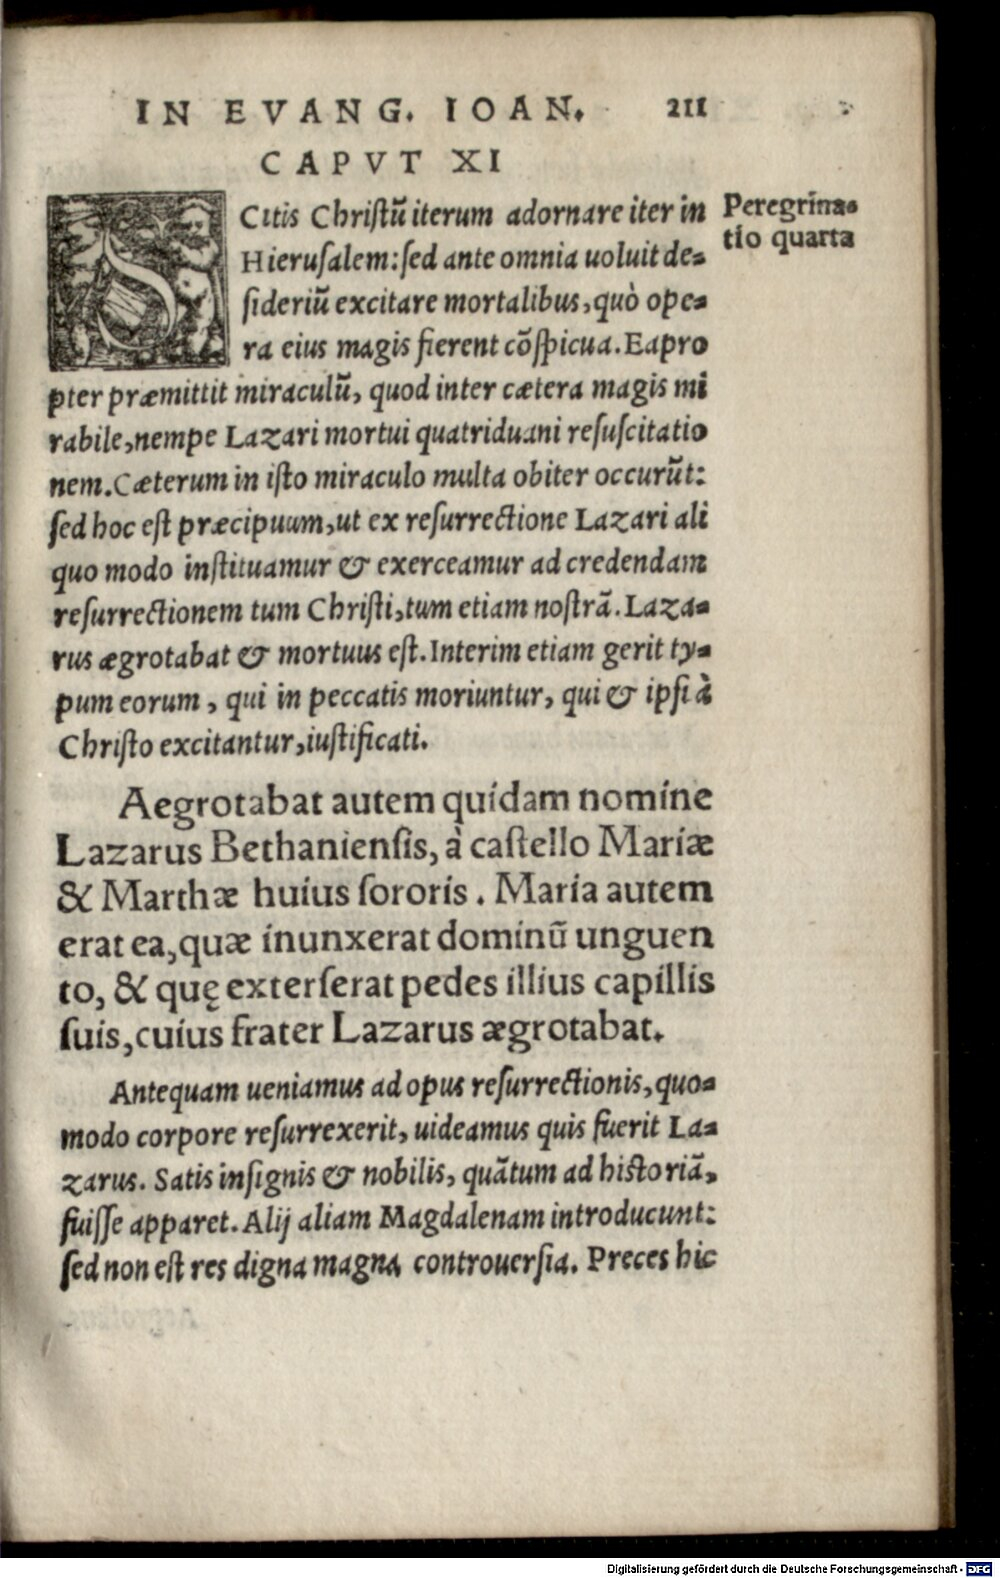 IN EVANG. IOAN. 211
CAPVT XI
SCitis Christũ iterum adornare iter in
Hierusalem: sed ante omnia uoluit de-
sideriũ excitare mortalibus, quò ope-
ra eius magis fierent cõspicua. Eapro
pter præmittit miraculũ, quod inter cætera magis mi
rabile, nempe Lazari mortui quatriduani resuscitatio
nem. Cæterum in isto miraculo multa obiter occurũt:
sed hoc est præcipuum, ut ex resurrectione Lazari ali
quo modo instituamur & exerceamur ad credendam
resurrectionem tum Christi, tum etiam nostrã. Laza-
rus ægrotabat & mortuus est. Interim etiam gerit ty-
pum eorum, qui in peccatis moriuntur, qui & ipsi à
Christo excitantur, iustificati.
Peregrina-
tio quarta
Aegrotabat autem quidam nomine
Lazarus Bethaniensis, à castello Mariæ
& Marthæ huius sororis. Maria autem
erat ea, quæ inunxerat dominũ unguen
to, & quę exterserat pedes illius capillis
suis, cuius frater Lazarus ægrotabat.
Antequam ueniamus ad opus resurrectionis, quo-
modo corpore resurrexerit, uideamus quis fuerit La-
zarus. Satis insignis & nobilis, quãtum ad historiã,
fuisse apparet. Alij aliam Magdalenam introducunt:
sed non est res digna magna controuersia. Preces hic
Digitalisierung gefördert durch die Deutsche Forschungsgemeinschaft - DFG